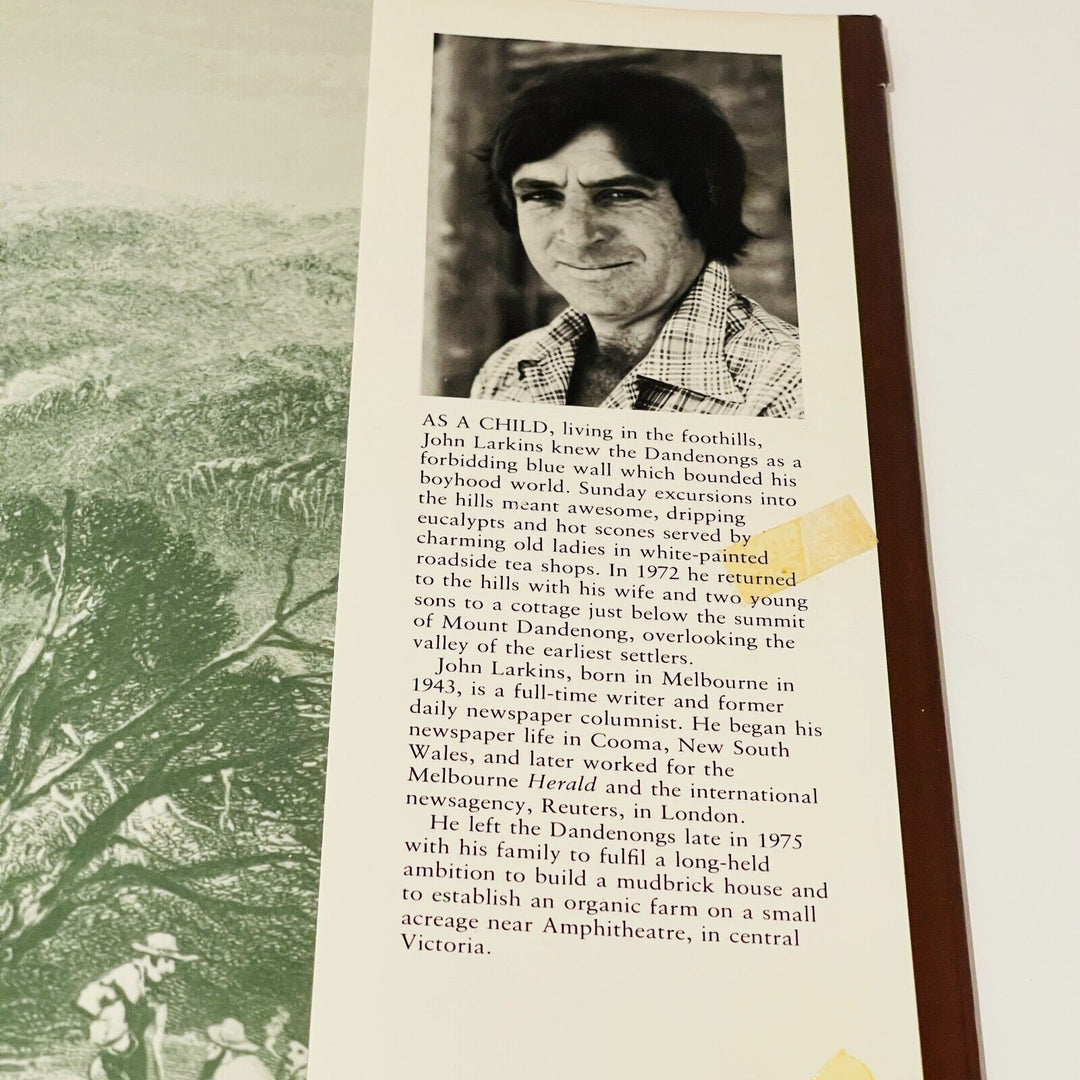 AS A CHILD, living in the foothills,
John Larkins knew the Dandenongs as a
forbidding blue wall which bounded his
boyhood world. Sunday excursions into
the hills meant awesome, dripping
eucalypts and hot scones served by
charming old ladies in white-painted
roadside tea shops. In 1972 he returned
to the hills with his wife and two young
sons to a cottage just below the summit
of Mount Dandenong, overlooking the
valley of the earliest settlers.
John Larkins, born in Melbourne in
1943, is a full-time writer and former
daily newspaper columnist. He began his
newspaper life in Cooma, New South
Wales, and later worked for the
Melbourne Herald and the international
newsagency, Reuters, in London.
He left the Dandenongs late in 1975
with his family to fulfil a long-held
ambition to build a mudbrick house and
to establish an organic farm on a small
acreage near Amphitheatre, in central
Victoria.